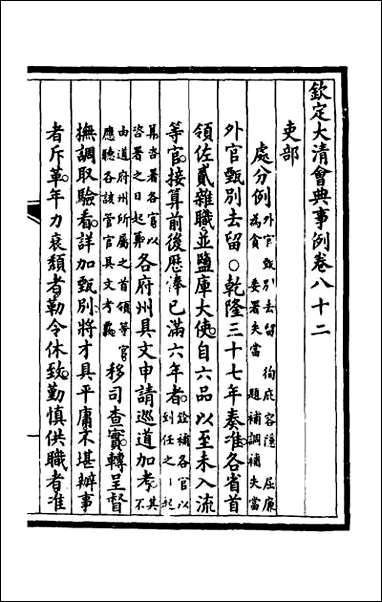 欽定大清會典事例卷八十二
吏部
處分例外官甄別去留 徇庇容隱 屈廉
為貪 委署失當 題補調補失當
外官甄別去留○乾隆三十七年奏准各省首
領佐貳雜職並鹽庫大使自六品以至未入流
等官接算前後歷俸已滿六年者銓補各官以
到任之日於
某咨署各官以
咨署之日起算各府州具文申請巡道加考其不
由道府州所屬之首領等官
應聽各該管官具文考覈移司查實轉呈督
撫調取驗看詳加甄別將才具平庸不堪辦事
者斥革年力衰頹者勒令休致勤慎供職者准